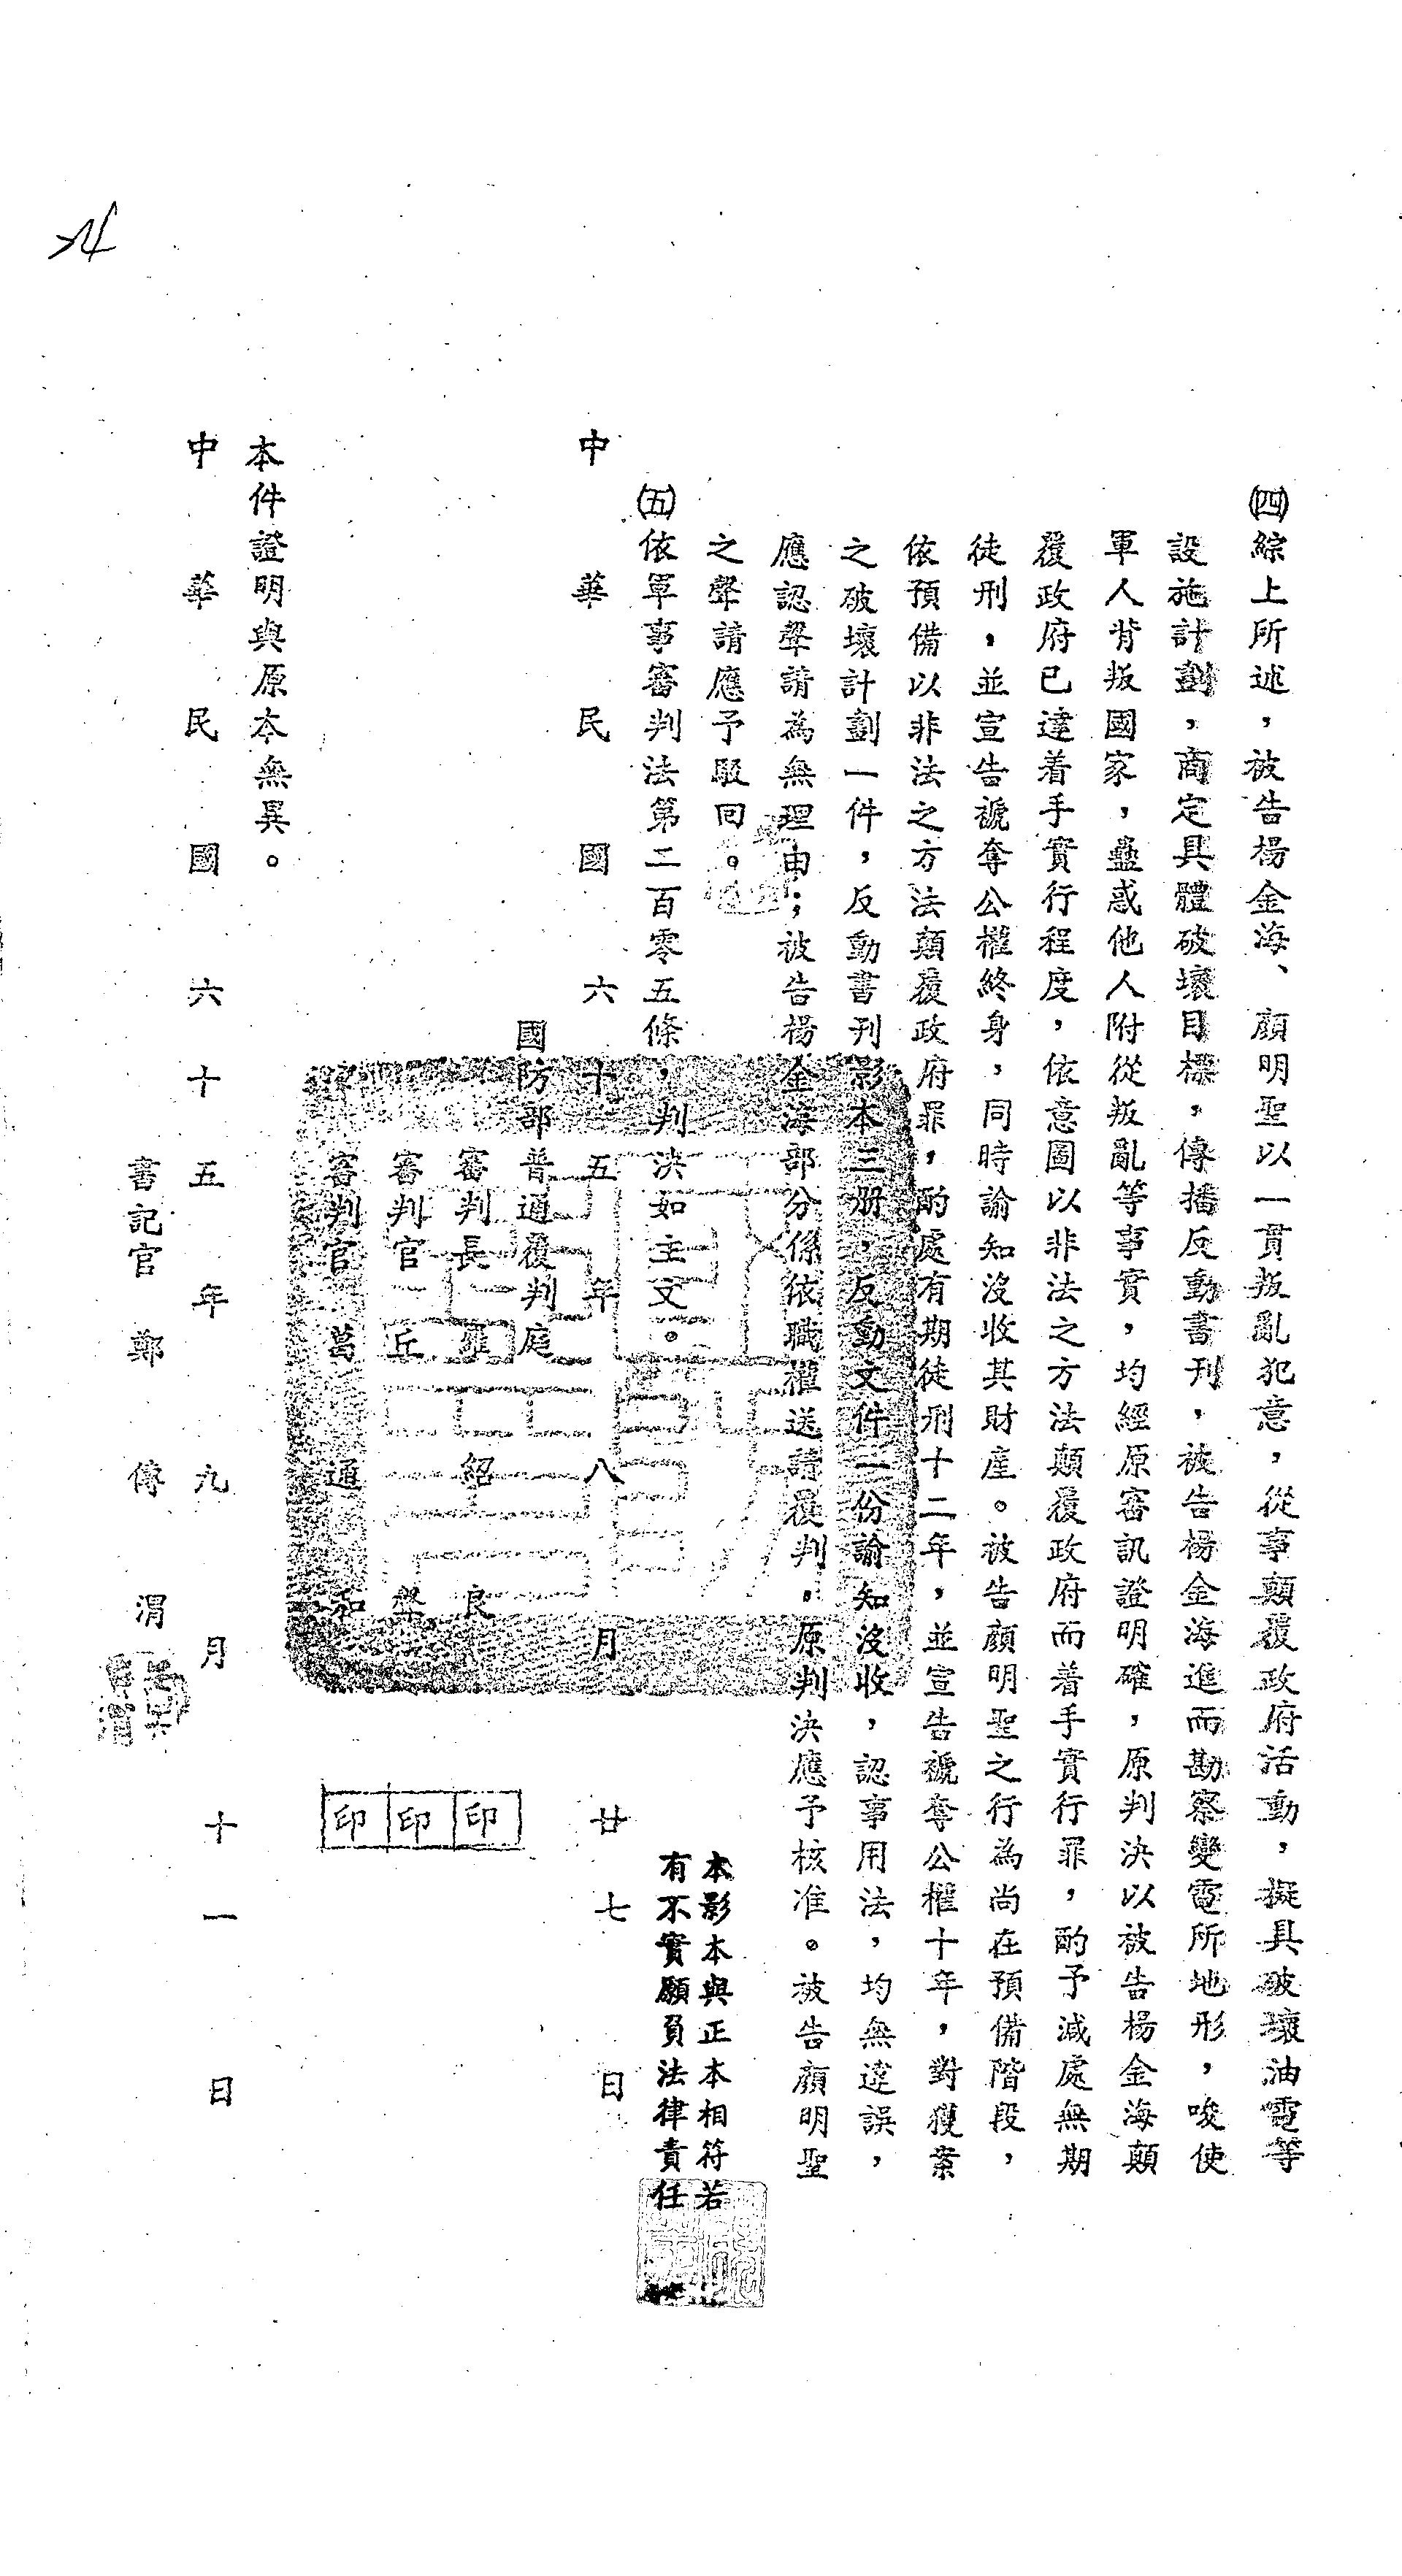 ㈣綜上所述，被告楊金海、顏明聖以一貫叛亂犯意，從事顛覆政府活動，擬具破壞油電等
設施計劃，商定具體破壞目標，傳播反動書刊，被告楊金海進而勘察變電所地形，唆使
軍人背叛國家，蠱惑他人附從叛亂等事實，均經原審訊證明確，原判決以被告楊金海顛
覆政府已達着手實行程度，依意圖以非法之方法顛覆政府而着手實行罪，酌予減處無期
徒刑，並宣告褫奪公權終身，同時諭知沒收其財產。被告顏明聖之行為尚在預備階段，
依預備以非法之方法顛覆政府罪，酌處有期徒刑十二年，並宣告褫奪公權十年，對獲案
之破壞計劃一件，反動書刊影本三册，反動文件一份諭知沒收，認事用法，均無違誤，
應認聲請為無理由；被告楊金海部分係依職權送請覆判，原判決應予核准。被告顏明聖
之聲請應予駁回。
㈤依軍事審判法第二百零五條，判決如主文。
本影本與正本相符若
有不實願負法律責任
中華民國六十五年八月廿七日
國防部普通覆判庭
審判長 紹良 印
審判官 丘 印
審判官 葛通和 印
本件證明與原本無異。
中華民國六十五年九月十一日
書記官 鄭傳渭